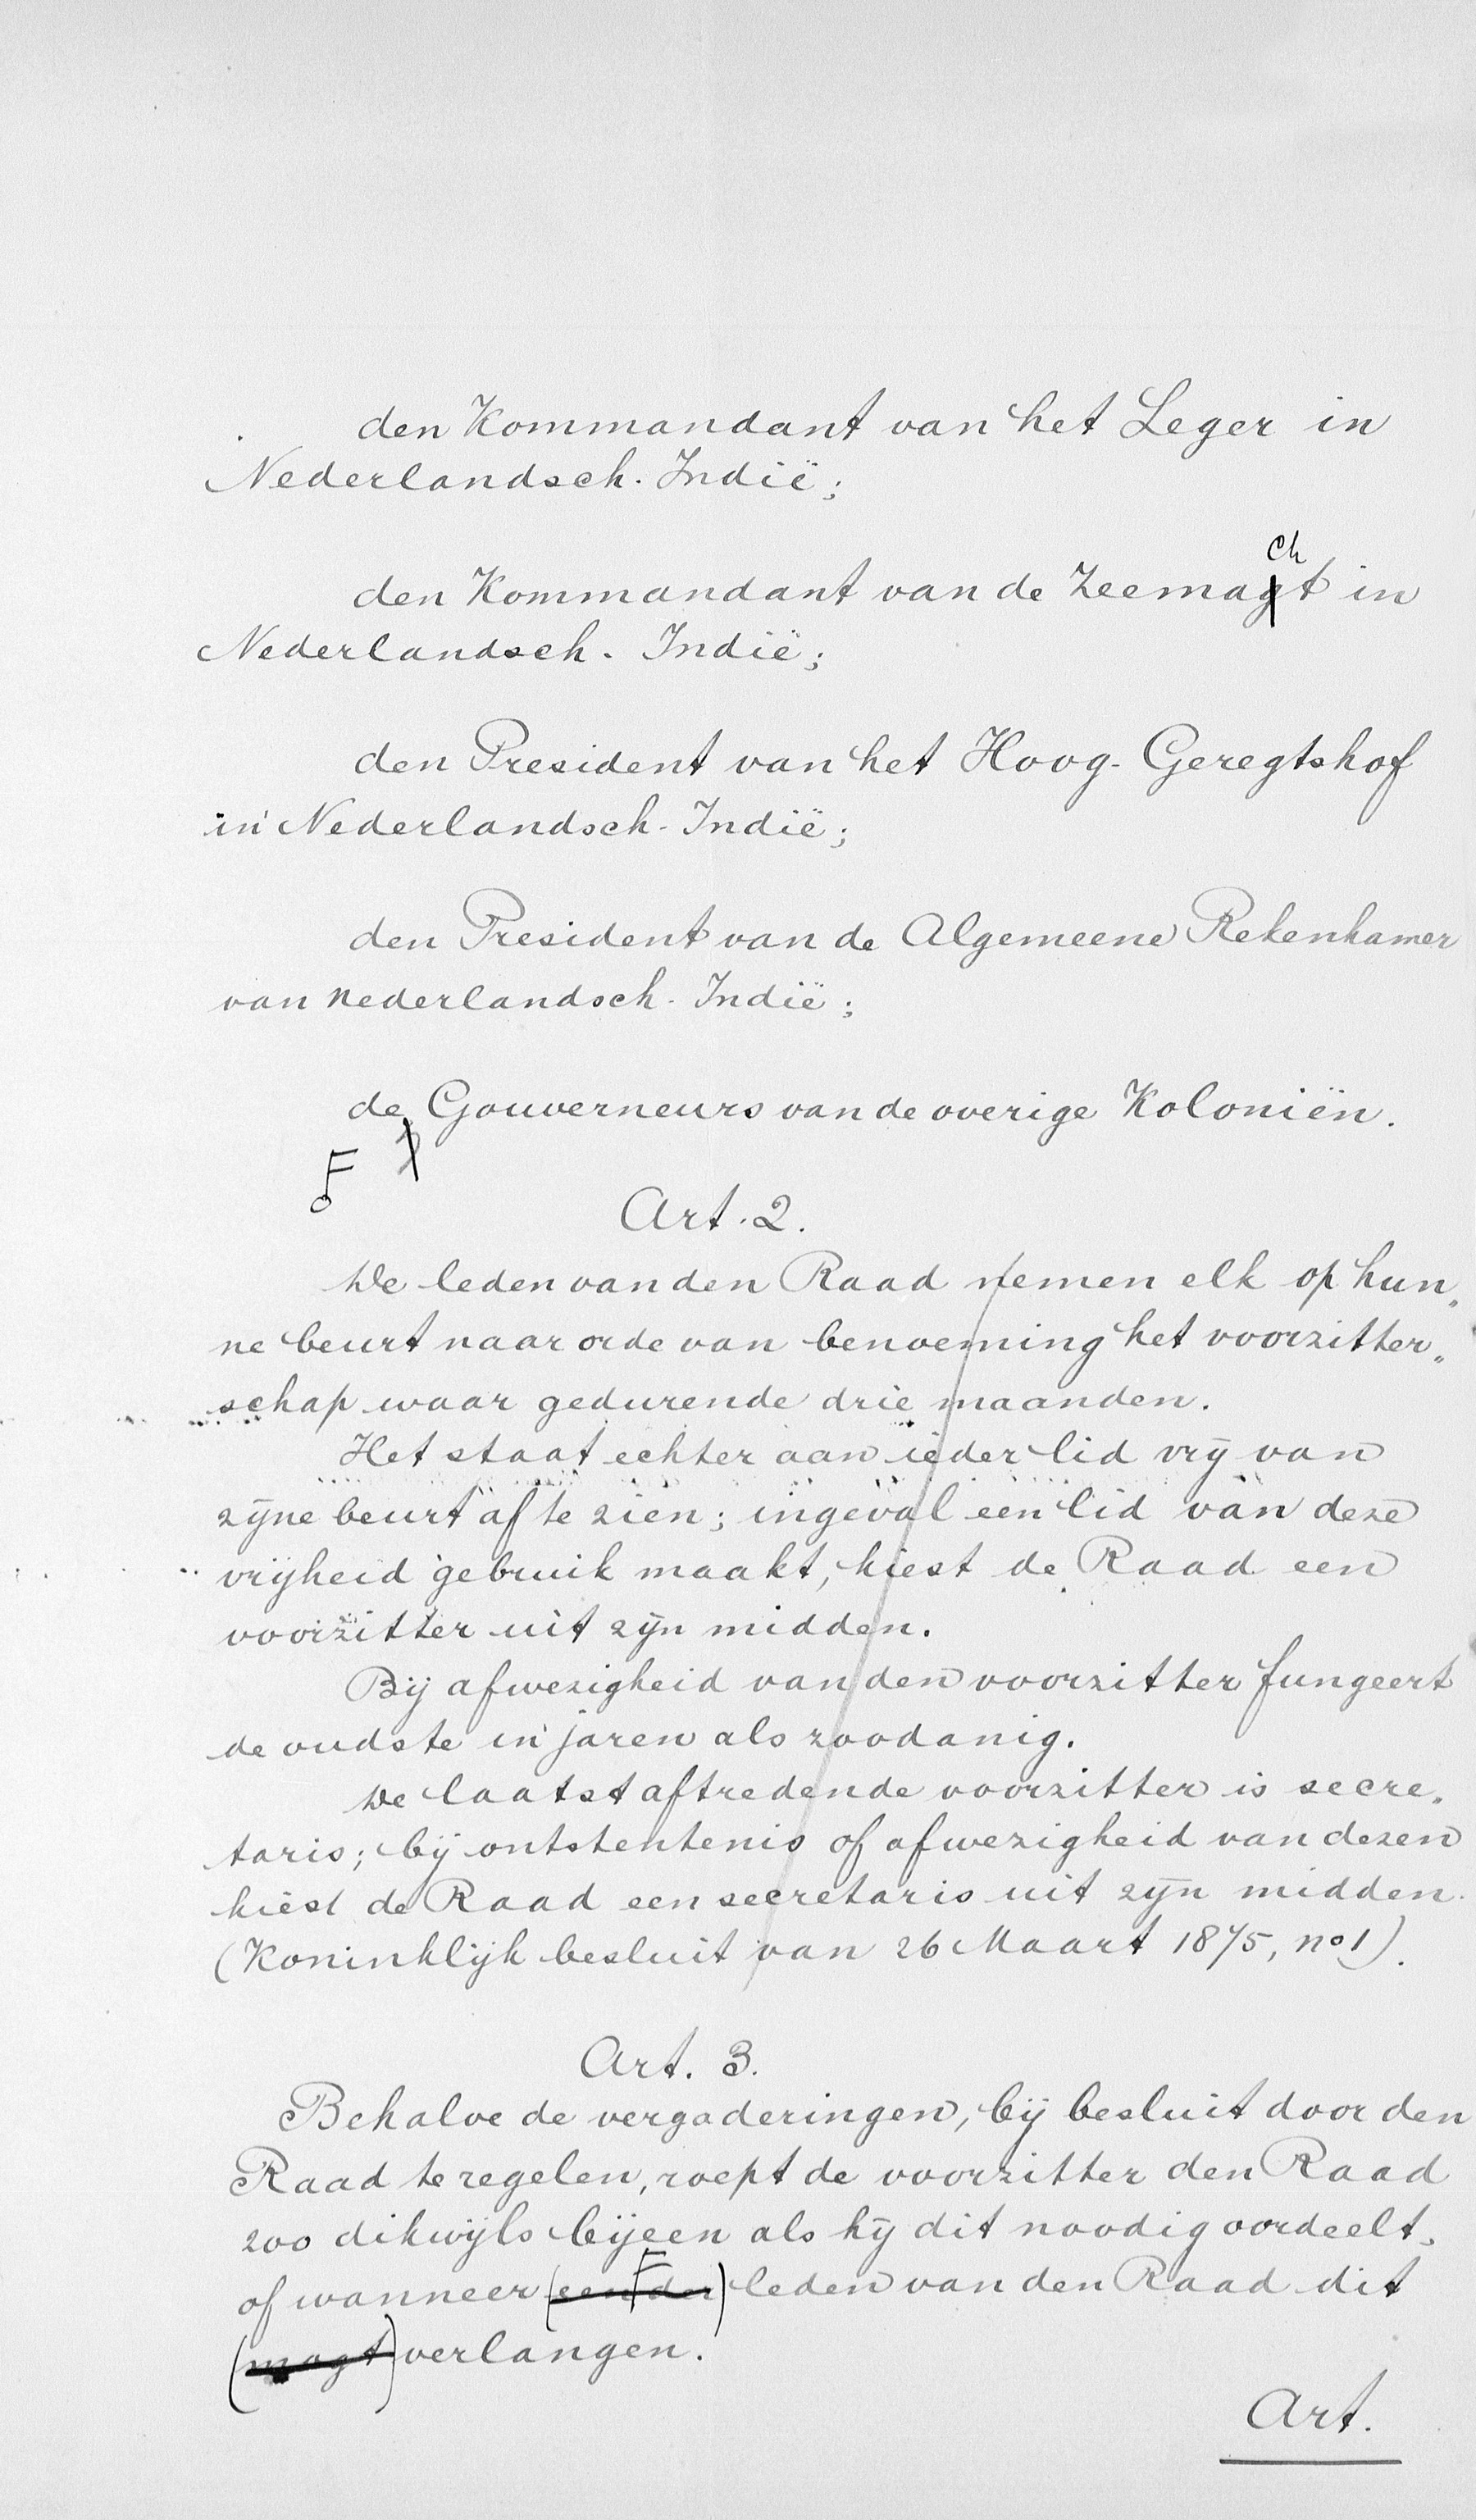 den Kommandant van het Leger in
Nederlandsch-Indië;
ch
den Kommandant van de Zeemagt in
Nederlandsch-Indië;
den President van het Hoog-Geregtshof
in Nederlandsch-Indië;
den President van de Algemeene Rekenkamer
van Nederlandsch-Indië;
de Gouverneurs van de overige Koloniën.
F
Art. 2.
De leden van den Raad nemen elk op hun„
ne beurt naar orde van benoeming het voorzitter„
schap waar gedurende drie maanden.
Het staat echter aan ieder lid vrij van
zijne beurt af te zien; ingeval een lid van deze
vrijheid gebruik maakt, kiest de Raad een
voorzitter uit zijn midden.
Bij afwezigheid van den voorzitter fungeert
de oudste in jaren als zoodanig.
De laatst aftredende voorzitter is secre„
taris; bij ontstentenis of afwezigheid van dezen
kiest de Raad een secretaris uit zijn midden.
(Koninklijk besluit van 26 Maart 1875, no 1).
Art. 3.
Behalve de vergaderingen, bij besluit door den
Raad te regelen, roept de voorzitter den Raad
zoo dikwijls bijeen als hij dit noodig oordeelt,
F
of wanneer (een der) leden van den Raad dit
(magt) verlangen.
Art.